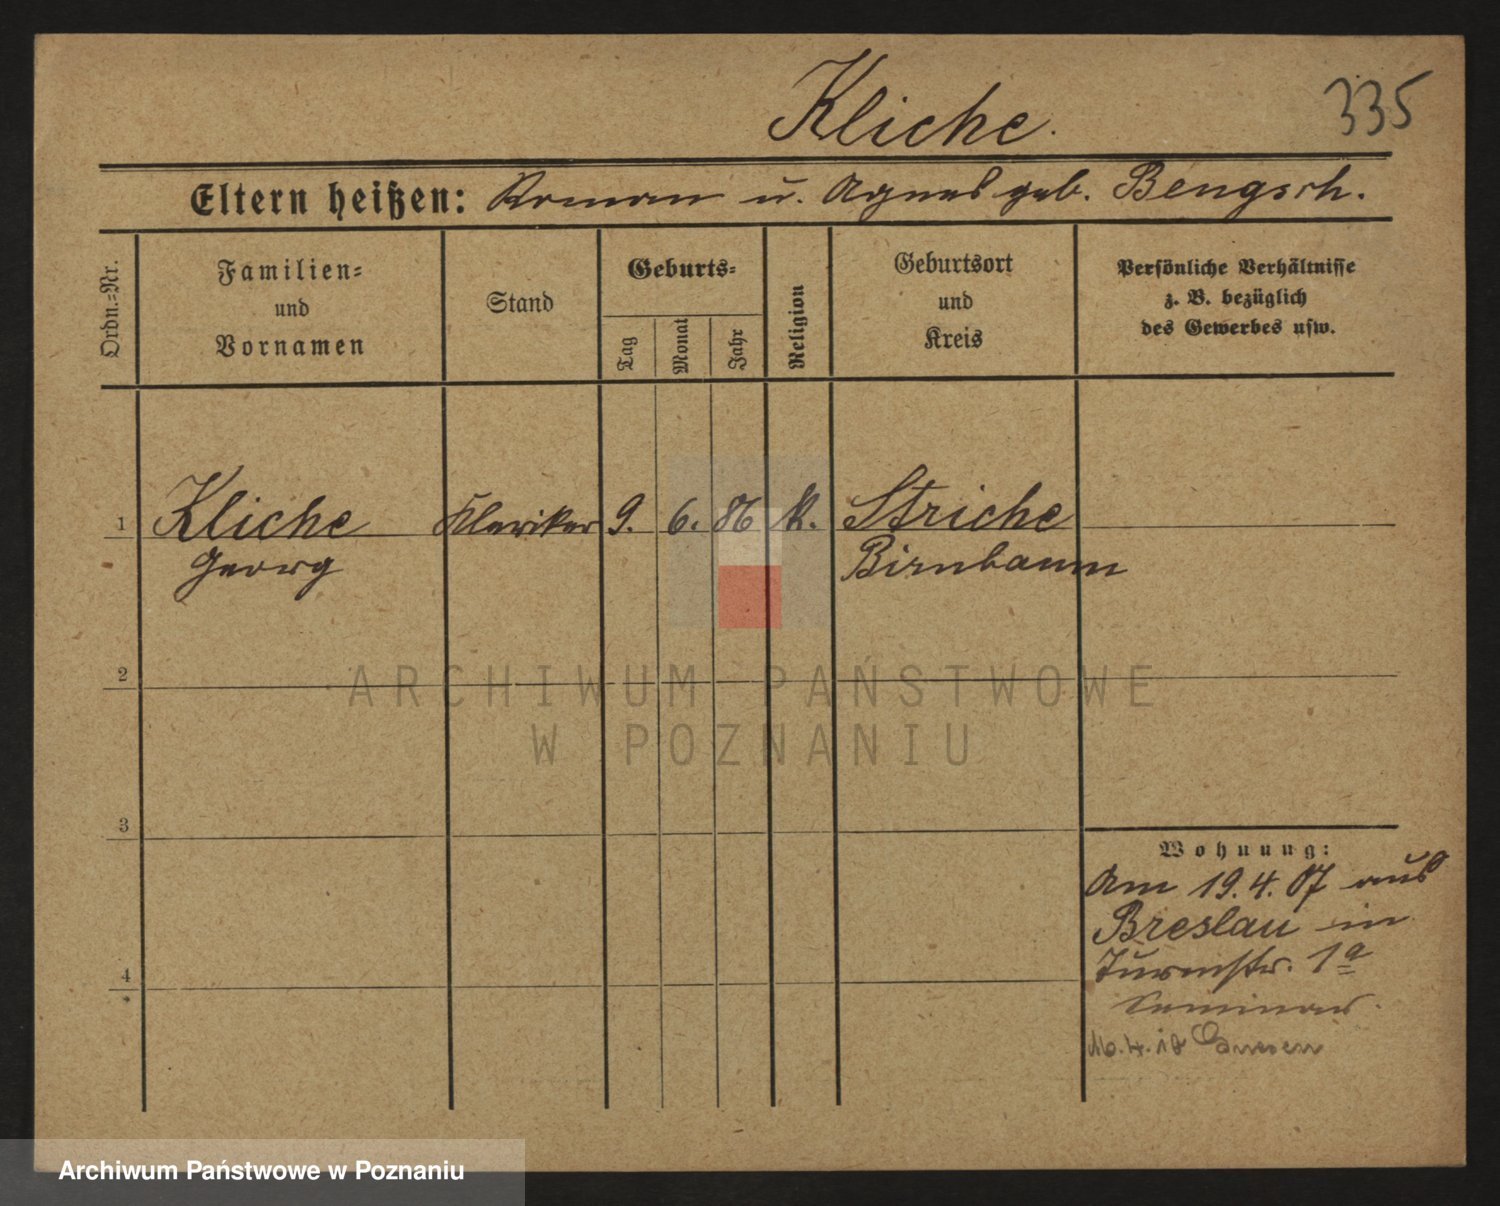 Kliche.
335
Eltern heißen: Roman u. Agnes geb. Bengsch.
Ordn.=Nr.
Familien=
und
Vornamen
Stand
Geburts=
Tag
Monat
Jahr
Religion
Geburtsort
und
Kreis
Persönliche Verhältnisse
z. B. bezüglich
des Gewerbes usw.
1 Kliche Kleriker 9. 6. 86 k. Striche
Georg Birnbaum
2
3
4
Wohnung:
Am 19.4.07 aus
Breslau in
Turmstr. 1a
Seminar.
Gnesen
ARCHIWUM PAŃSTWOWE
W POZNANIU
Archiwum Państwowe w Poznaniu